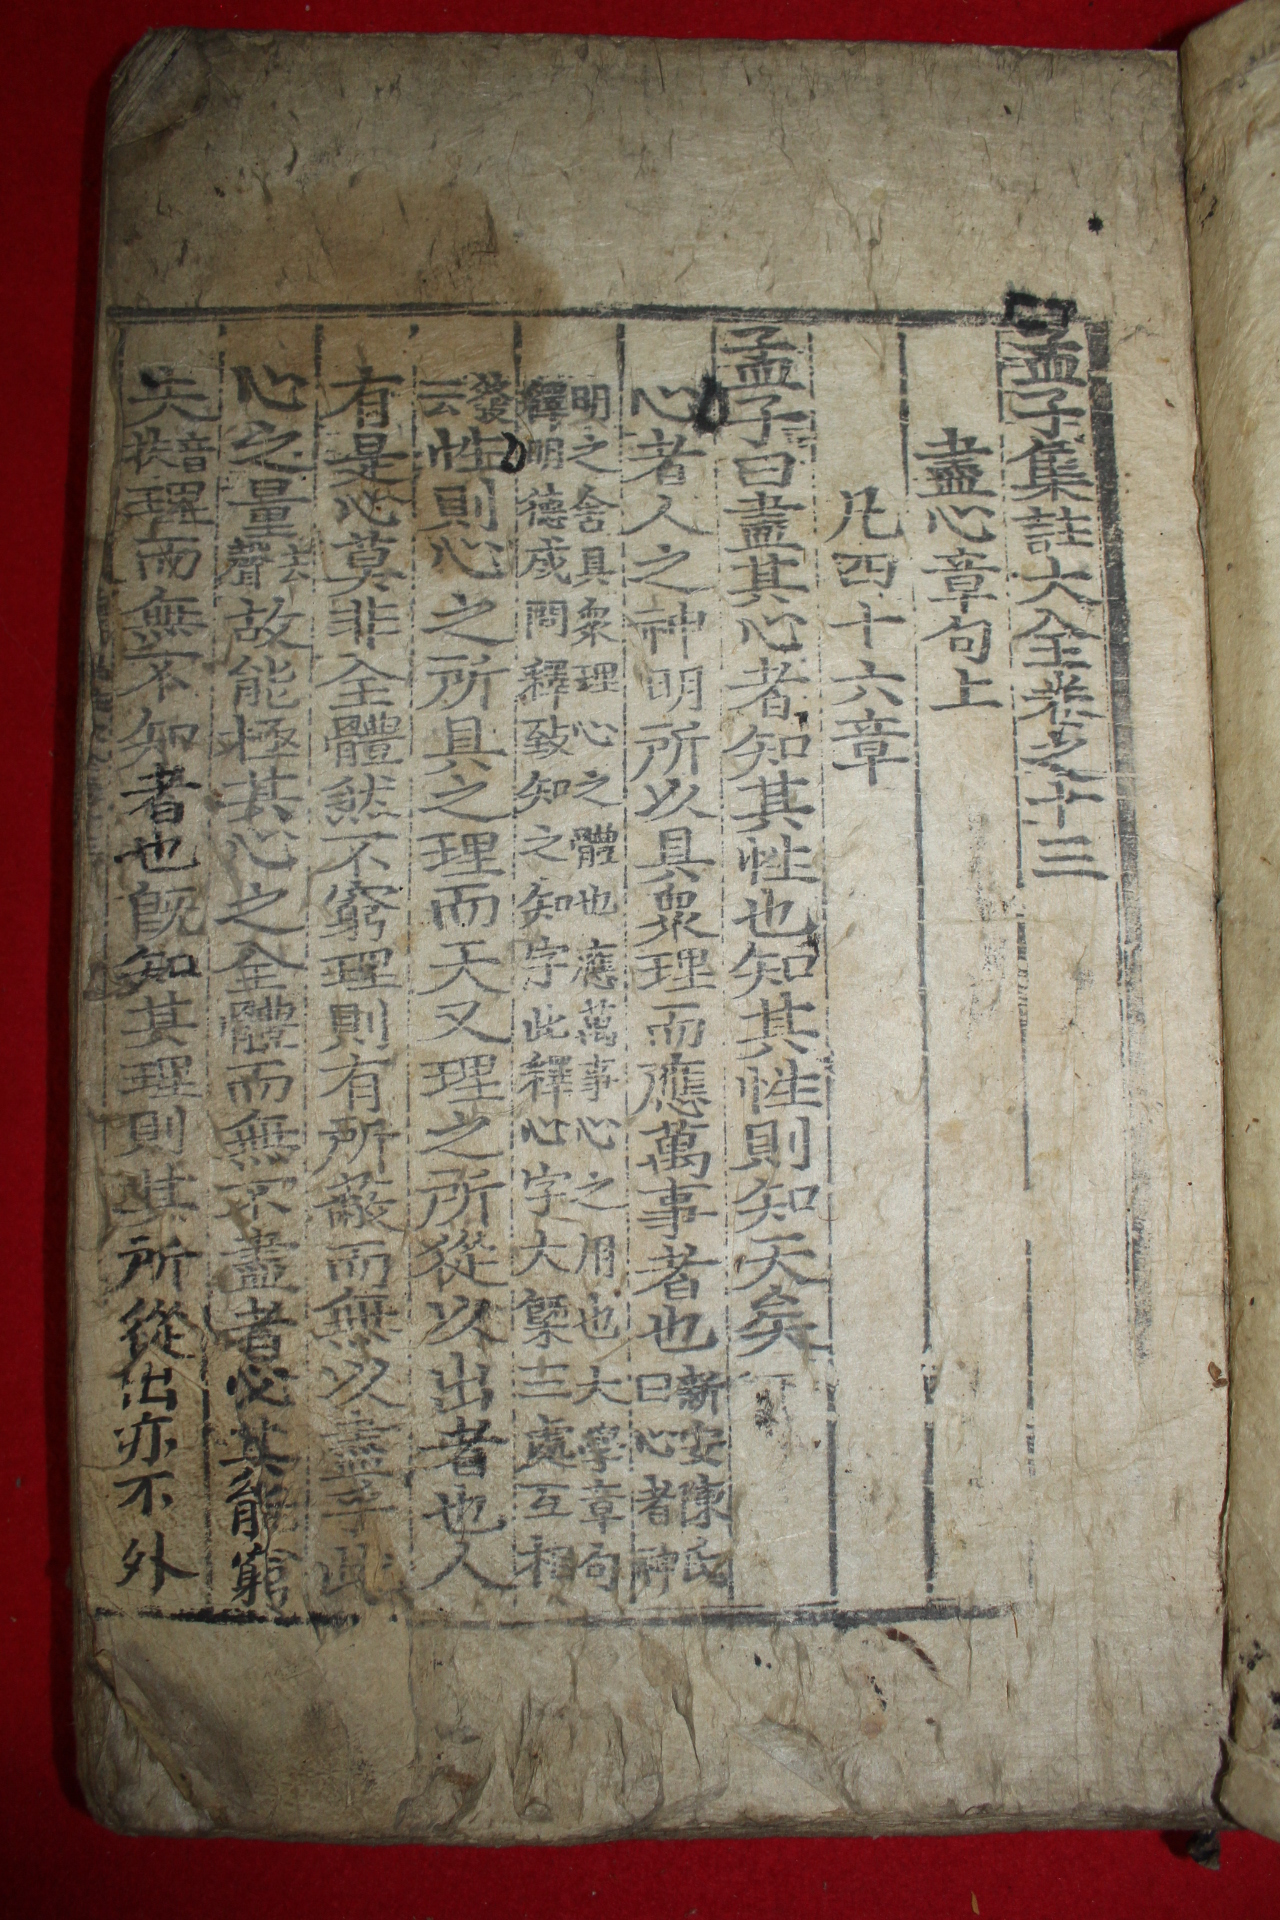 孟子集註大全卷之十三
盡心章句上
凡四十六章
孟子曰盡其心者知其性也知其性則知天矣
心者人之神明所以具衆理而應萬事者也新安陳氏
曰心者神
明之舍具衆理心之體也應萬事心之用也大學章句
釋明德或問釋致知之知字此釋心字大槩三處互相
發
云
性則心之所具之理而天又理之所從以出者也人
有是心莫非全體然不窮理則有所蔽而無以盡乎此
心之量去聲故能極其心之全體而無不盡者必其能窮
夫音扶理而無不知者也旣知其理則其所從出亦不外